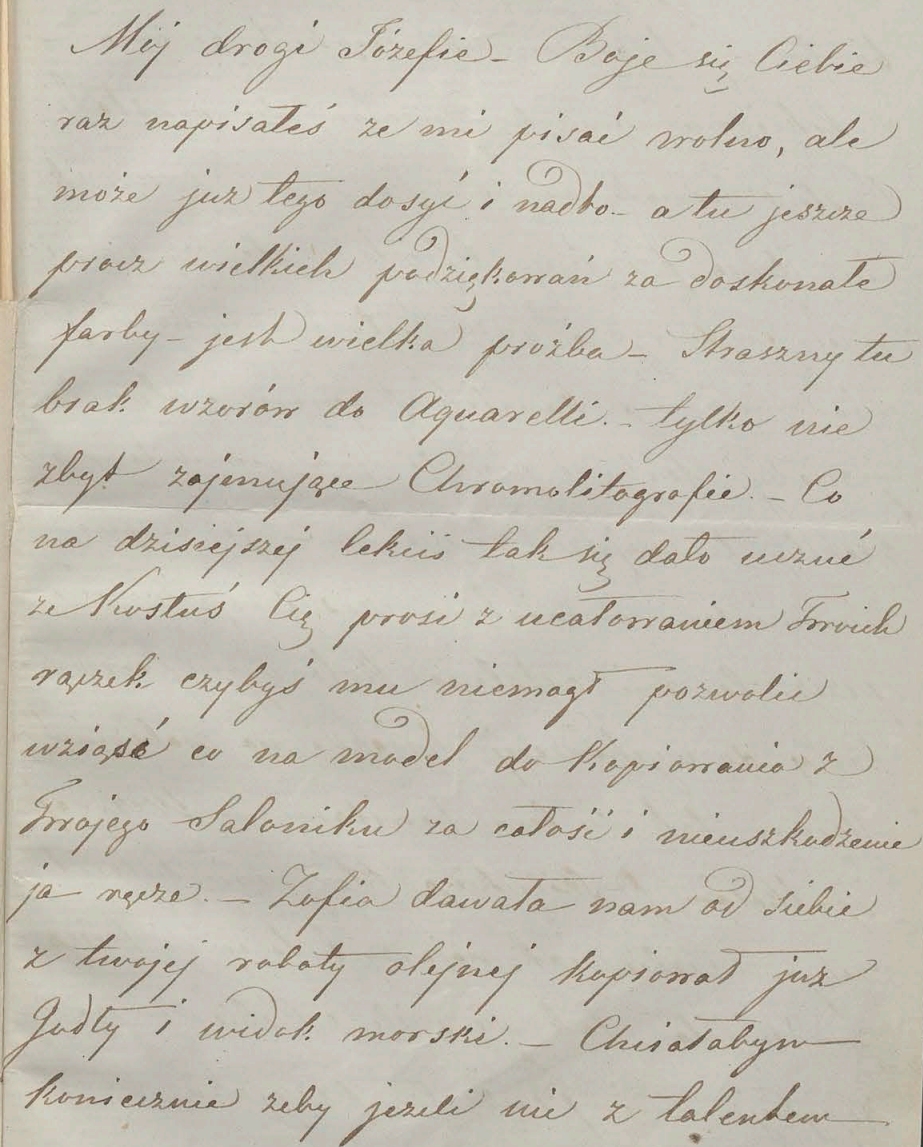 Mój drogi Józefie – Boje się Ciebie
raz napisałeś ze mi pisać wolno, ale
może juz tego dosyć i nadto – a tu jeszcze
procz wielkich podziękowań za doskonałe
farby – jest wielka proźba – Straszny tu
brak wzorów do Aquarelli. – tylko nie
zbyt zajmujące Chromolitografie. – Co
na dzisiejszej lekcii tak się dało uczuć
ze Kostuś Cię prosi z ucałowaniem Twoich
rączek czybyś mu niemogł pozwolić
wziąść co na model do Kopiowania z
Twojego Saloniku za całość i nieuszkodzenie
ja ręcze. – Zofia dawała nam od siebie
z twojej roboty olejnej kopiował juz
Jodły i widok morski. – Chciałabym
koniecznie zeby jezeli nie z talentem